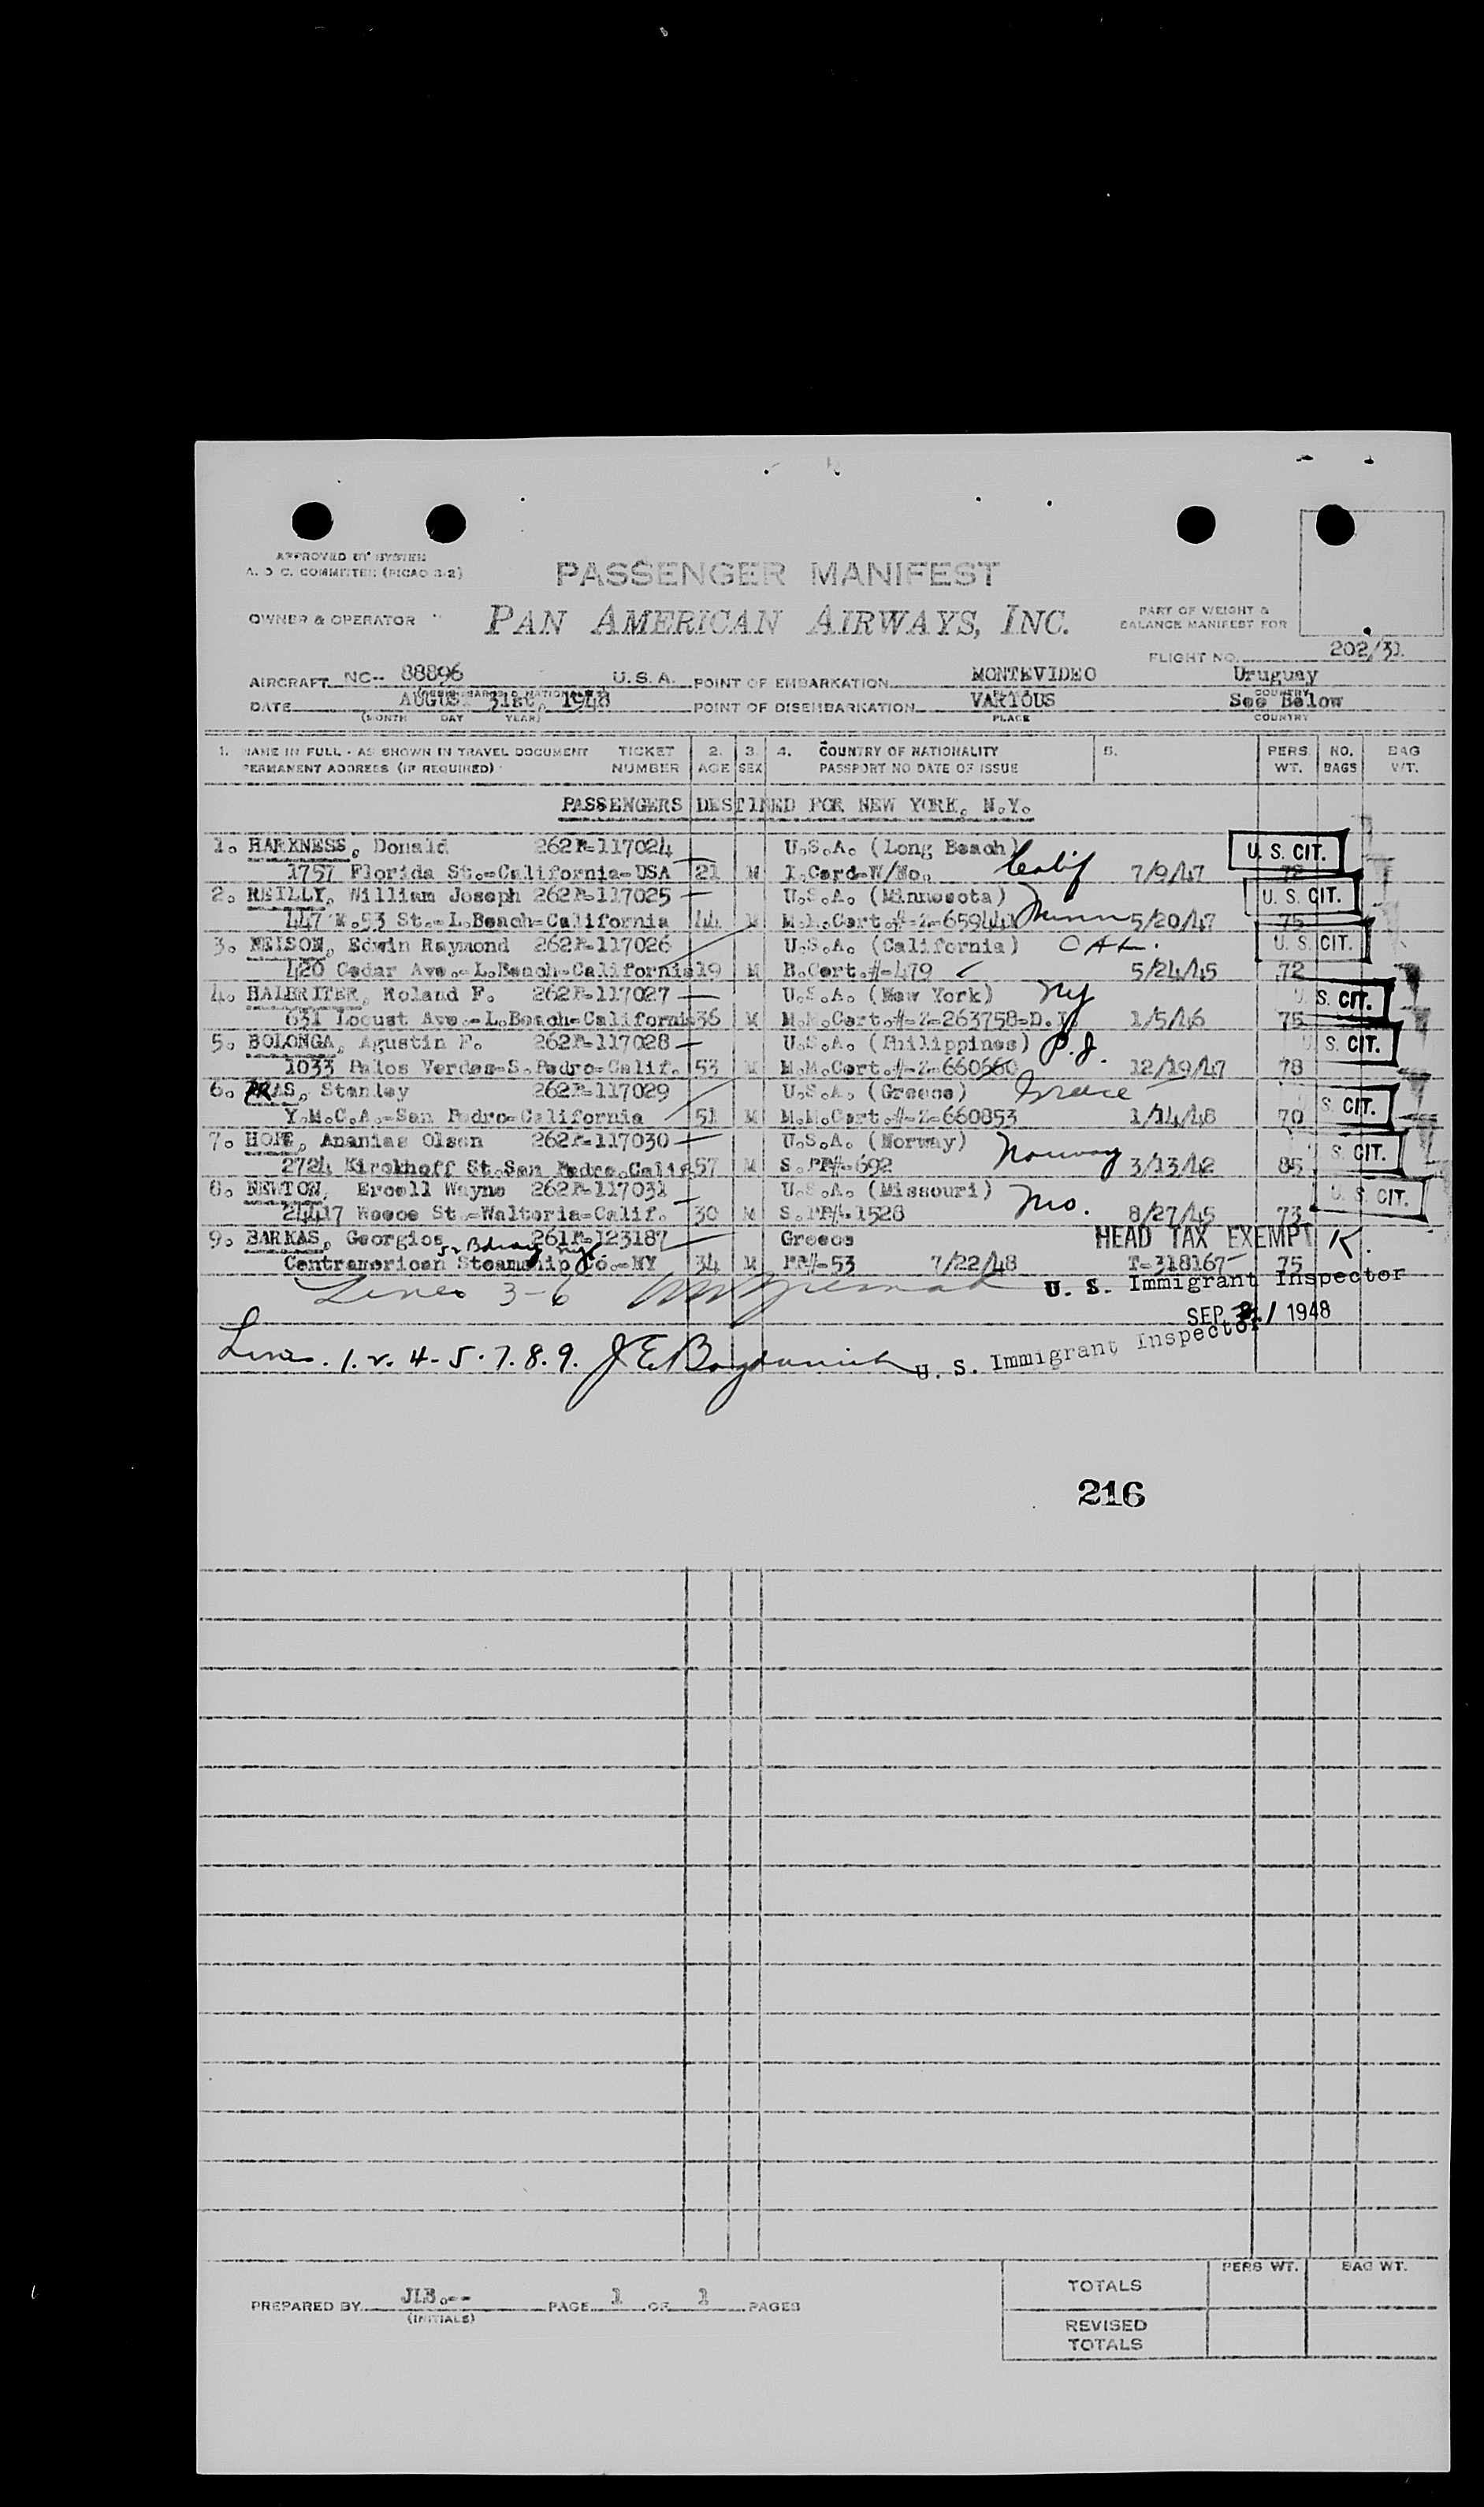 APPROVED BY SYSTEM
A. O C. COMMITTEE (PICAO 3-2)
PASSENGER MANIFEST
OWNER & OPERATOR
PAN AMERICAN AIRWAYS, INC.
PART OF WEIGHT &
BALANCE MANIFEST FOR
FLIGHT NO. 202/31
AIRCRAFT NC-- 88896 U.S.A. POINT OF EMBARKATION MONTEVIDEO Uruguay
DATE AUGUST 31st, 1948 POINT OF DISEMBARKATION VARIOUS See Below
(MONTH DAY YEAR) PLACE COUNTRY
1. NAME IN FULL - AS SHOWN IN TRAVEL DOCUMENT TICKET 2. 3. 4. COUNTRY OF NATIONALITY 5. PERS. NO. BAG
PERMANENT ADDRESS (IF REQUIRED) NUMBER AGE SEX PASSPORT NO DATE OF ISSUE WT. BAGS WT.
PASSENGERS DESTINED FOR NEW YORK, N.Y.
1. HARKNESS, Donald 262R-117024 U.S.A. (Long Beach) U. S. CIT.
1757 Florida St.-California-USA 21 M I.Card-W/No. Calif 7/9/47 72
2. REILLY, William Joseph 262R-117025 U.S.A. (Minnesota) U. S. CIT.
447 W.53 St.-L.Beach-California 44 M M.M.Cert.#-Z-659441 Minn 5/20/47 75
3. NELSON, Edwin Raymond 262R-117026 U.S.A. (California) CAL. U. S. CIT.
420 Cedar Ave.-L.Beach-California 19 M B.Cert.#-479 5/24/45 72
4. HALBRITER, Roland F. 262R-117027 U.S.A. (New York) NY U. S. CIT.
631 Locust Ave.-L.Beach-California 36 M M.M.Cert.#-Z-263758-D. 1/5/46 75
5. BOLONGA, Agustin F. 262R-117028 U.S.A. (Philippines) P.I. U. S. CIT.
1033 Palos Verdes-S.Pedro-Calif. 53 M M.M.Cert.#-Z-660660 12/19/47 78
6. Stanley 262R-117029 U.S.A. (Greece) Greece S. CIT.
Y.M.C.A.-San Pedro-California 51 M M.M.Cert.#-Z-660853 1/14/48 70
7. Ananias Olsen 262R-117030 U.S.A. (Norway) Norway S. CIT.
2724 Kirckhoff St.San Pedro.Calif. 57 M S.PP#-692 3/13/42 85
8. NEWTON, Ercell Wayne 262R-117031 U.S.A. (Missouri) Mo. U. S. CIT.
24417 Neece St.-Walteria-Calif. 30 M S.PP#-1528 8/27/45 73
9. BARKAS, Georgios 261R-123187 Greece HEAD TAX EXEMPT K.
Centramerican Steamship Co.-NY 34 M PP#-53 7/22/48 T-318167 75
Lines 3-6 U. S. Immigrant Inspector
SEP 1948
Lines. 1. 2. 4. 5. 7. 8. 9. U. S. Immigrant Inspector
216
PERS WT. BAG WT.
TOTALS
PREPARED BY JLB.-- PAGE 1 OF 1 PAGES
(INITIALS)
REVISED
TOTALS